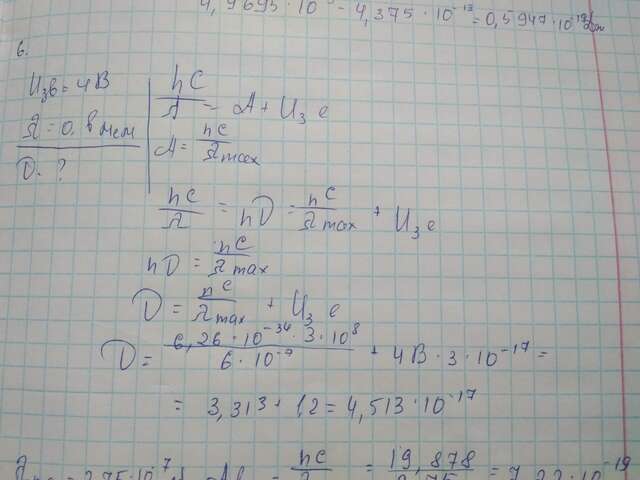 4,9695·10 - 4,375·10⁻¹⁹ = 0,5947·10⁻¹⁹ Дж
6.
Uзв = 4В
λ = 0.6 мкм
D. ?
hc/λ = A + Uз e
A = hc/λmax
hc/λ = hD = hc/λmax + Uз e
hD = hc/λmax
D = hc/λmax + Uз e
D = 6,26·10⁻³⁴·3·10⁸/6·10⁻⁷ + 4В·3·10⁻¹⁷ =
= 3,313 + 1,2 = 4,513·10⁻¹⁷
hc/λ = 19,878